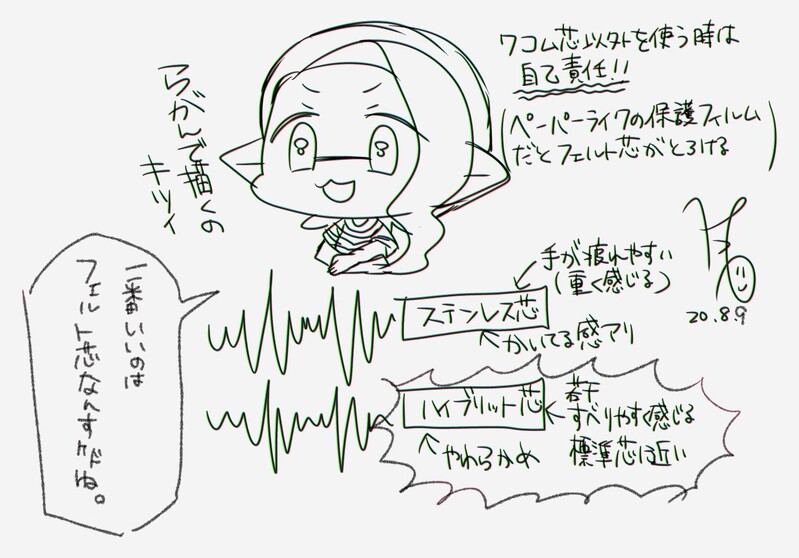 ワコム芯以外を使う時は
自己責任!!
(ペーパーライクの保護フィルム
だとフェルト芯がとろける)
らがんで描くの
キツイ
20.8.9
一番いいのは
フェルト芯なんすけどね。
手が疲れやすい
(重く感じる)
ステンレス芯
かいてる感アリ
ハイブリット芯
若干
すべりやすく感じる
標準芯に近い
やわらかめ